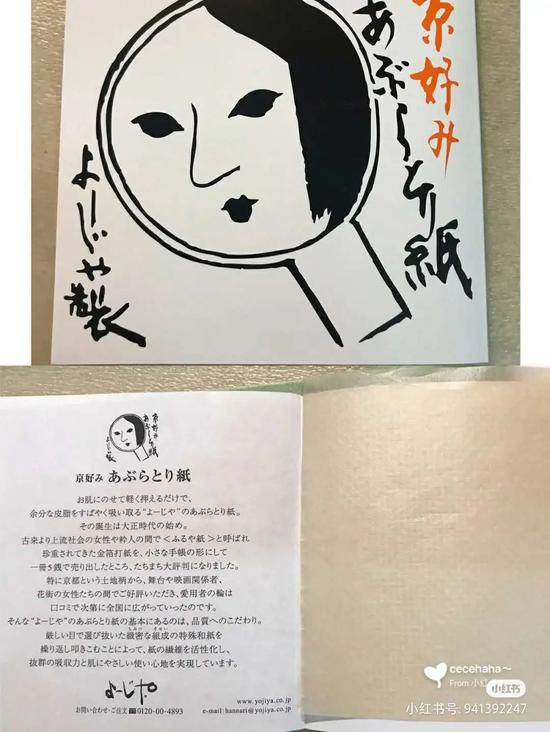 京好み
あぶらとり紙
よーじや製
京好み
あぶらとり紙
よーじや製
京好み あぶらとり紙
お肌にのせて軽く押えるだけで、
余分な皮脂をすばやく吸い取る“よーじや”のあぶらとり紙。
その誕生は大正時代の始め。
古来より上流社会の女性や粋人の間で＜ふるや紙＞と呼ばれ
珍重されてきた金箔打紙を、小さな手帳の形にして
一冊5銭で売り出したところ、たちまち大評判になりました。
特に京都という土地柄から、舞台や映画関係者、
花街の女性たちの間でご好評いただき、愛用者の輪は
口コミで次第に全国に広がっていったのです。
そんな“よーじや”のあぶらとり紙の基本にあるのは、品質へのこだわり。
厳しい目で選び抜いた緻密な組成の特殊和紙を
繰り返し叩きこむことによって、紙の繊維を活性化し、
抜群の吸収力と肌にやさしい使い心地を実現しています。
よーじや
www.yojiya.co.jp
お問い合わせ・ご注文 0120-00-4893 e-mail: hannari@yojiya.co.jp
cecehaha～
From 小红书
小红书
小红书号: 941392247